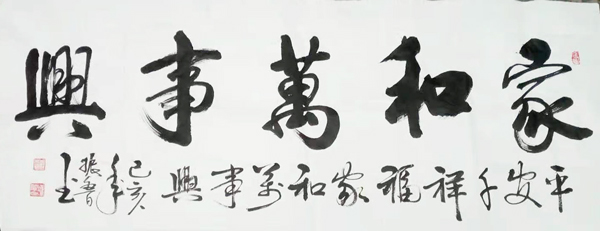 家和萬事興
平安祥福家和萬事興 己亥年 振魯書